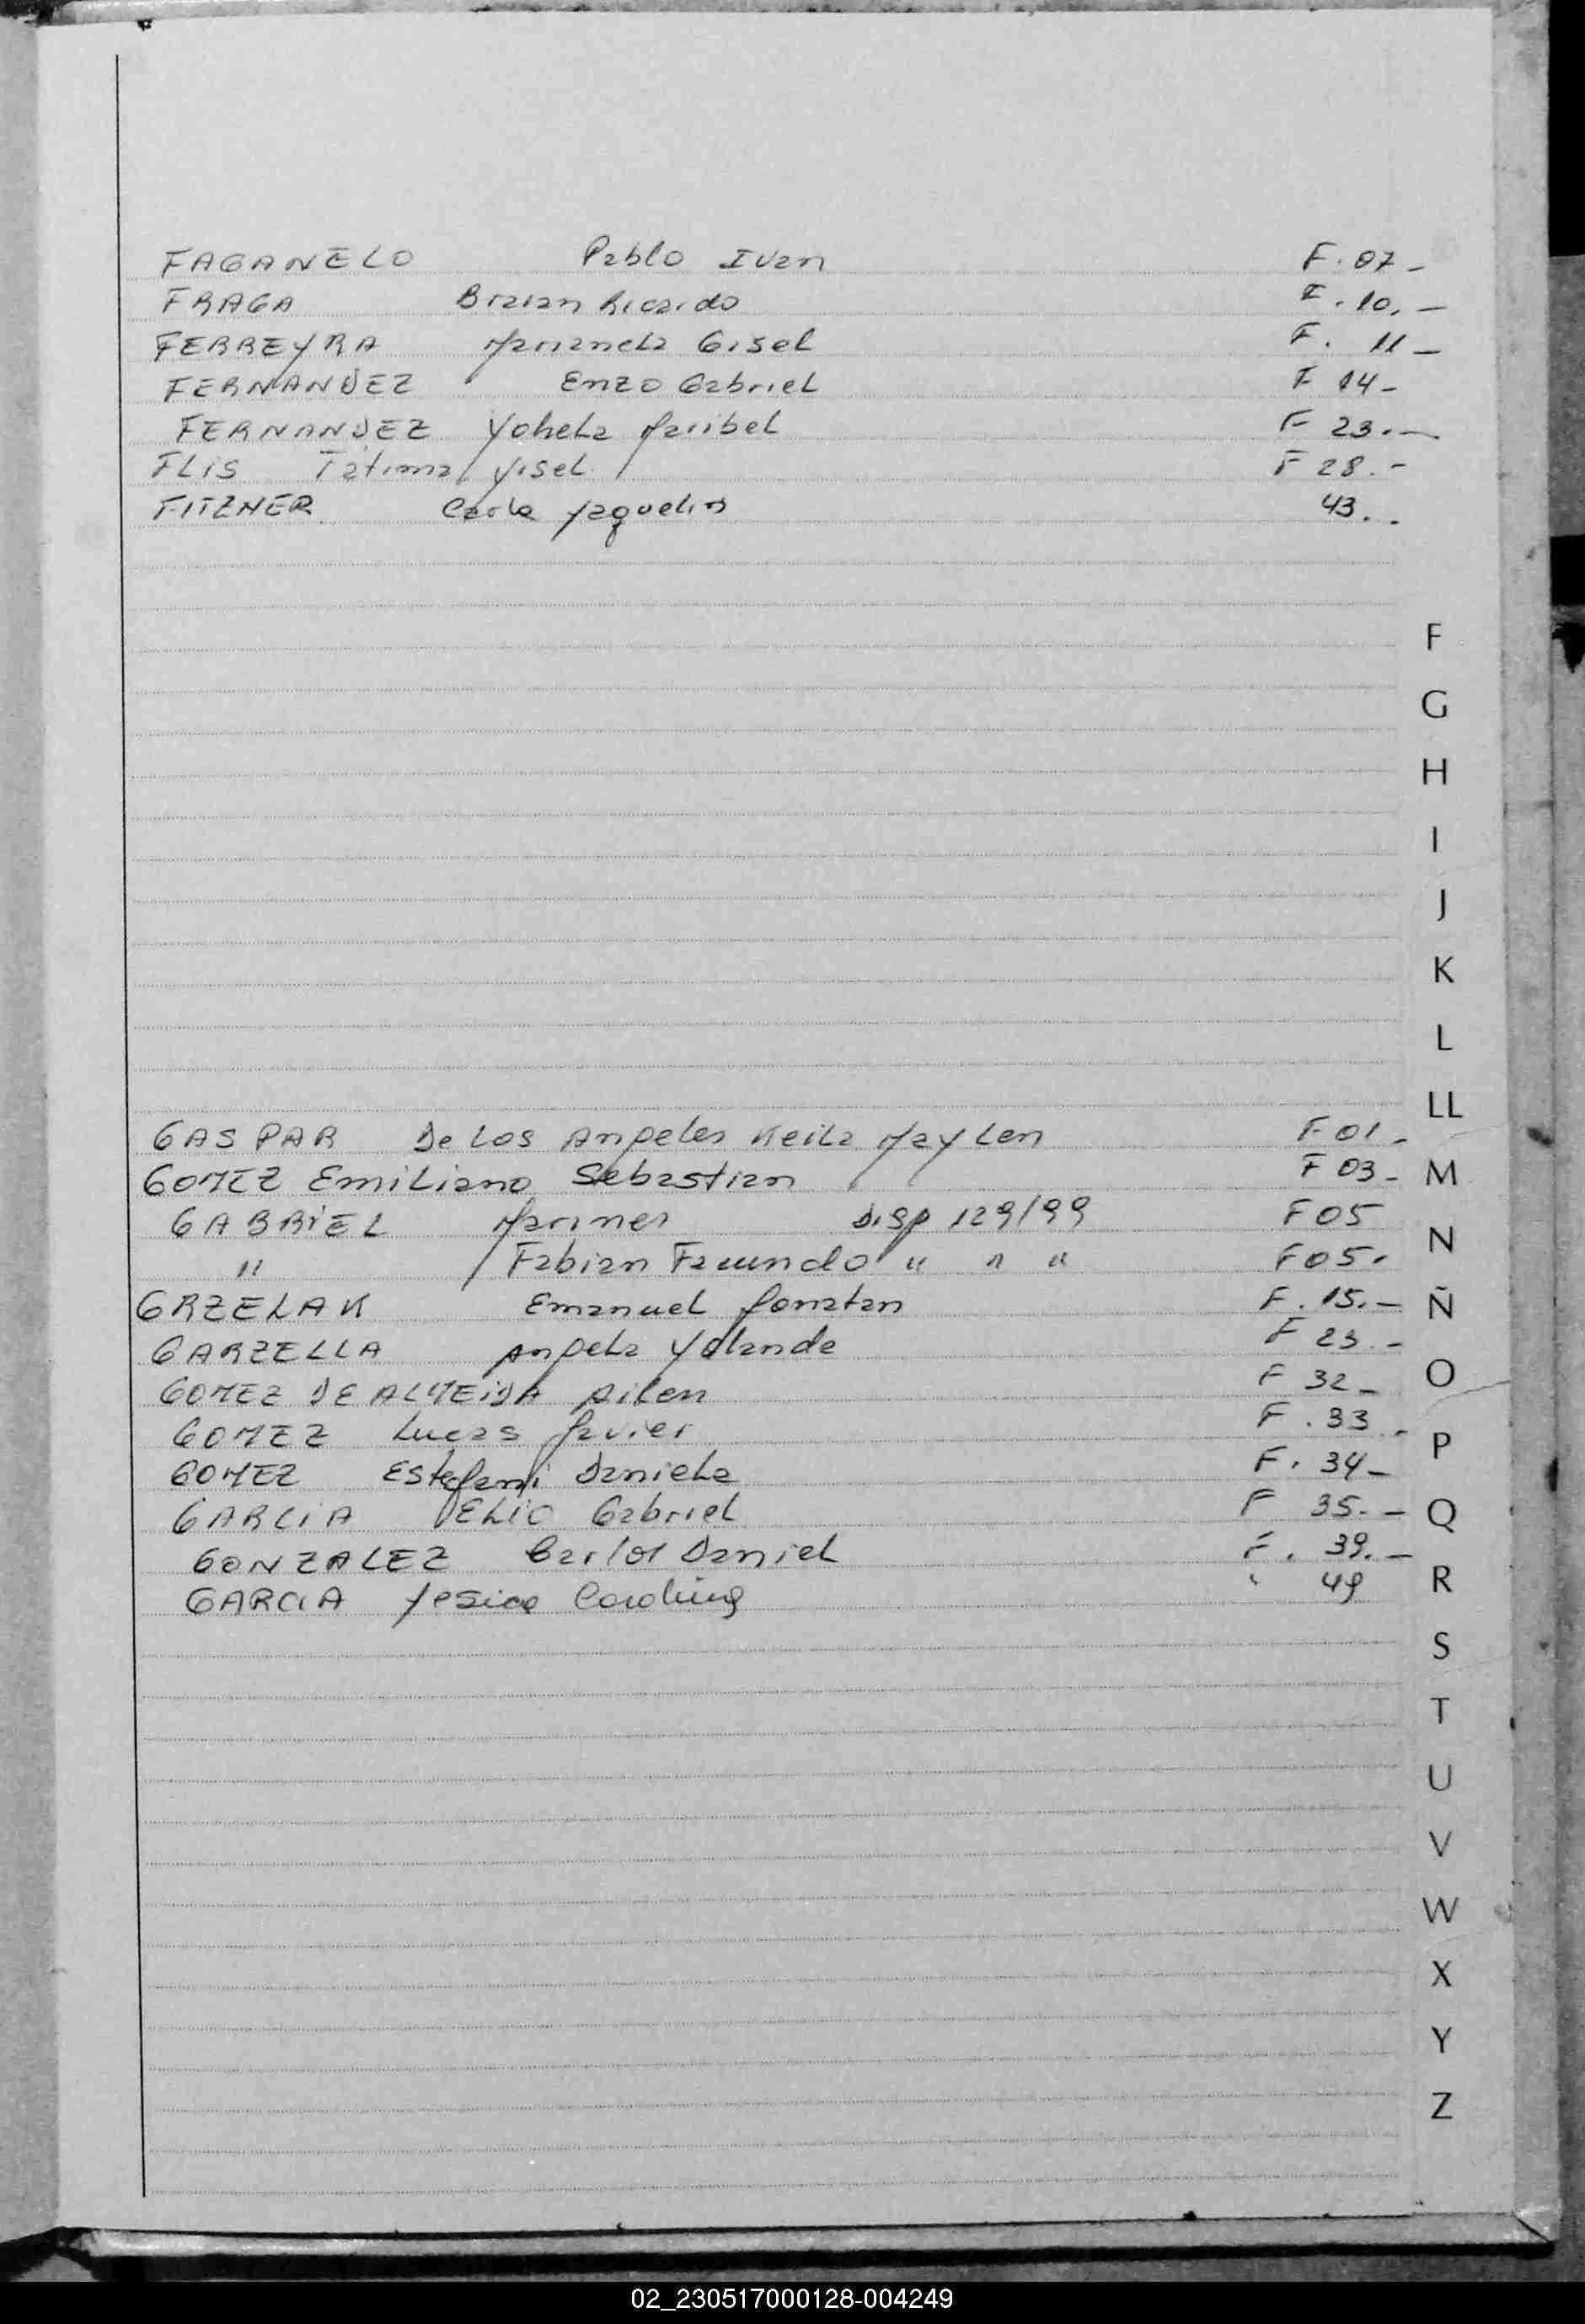 FAGANELO Pablo Ivan F. 07-
FRAGA Braian Ricardo F. 10.-
FERREYRA Marianela Gisel F. 11-
FERNANDEZ Enzo Gabriel F 14-
FERNANDEZ Yohela Maribel F 23.-
FLIS Fatima Yisel F 28.-
FITZNER Carla Yaquelin 43..
F
G
H
I
J
K
L
LL
GASPAR De Los Angeles Keila Maylen F 01-
GOMEZ Emiliano Sebastian F 03-
M
GABRIEL Marines Disp 129/99 F05
N
" Fabian Facundo " " " F05.
GRZELAK Emanuel Jonatan F. 15.-
Ñ
GARZELLA Angela Yolanda F 23.-
GOMEZ DE ALMEIDA Ailen F 32-
O
GOMEZ Lucas Javier F. 33-
P
GOMEZ Estefani Daniela F. 34-
GARCIA ELIO Gabriel F 35.-
Q
GONZALEZ Carlos Daniel F. 39.-
GARCIA Yesica Carolina " 49
R
S
T
U
V
W
X
Y
Z
02_230517000128-004249